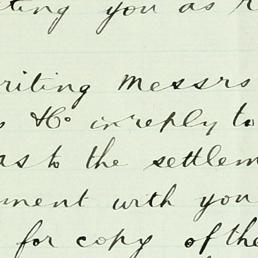 ting you as r
riting Messrs
s & Co in reply to
as to the settlem
ment with you
for copy of the